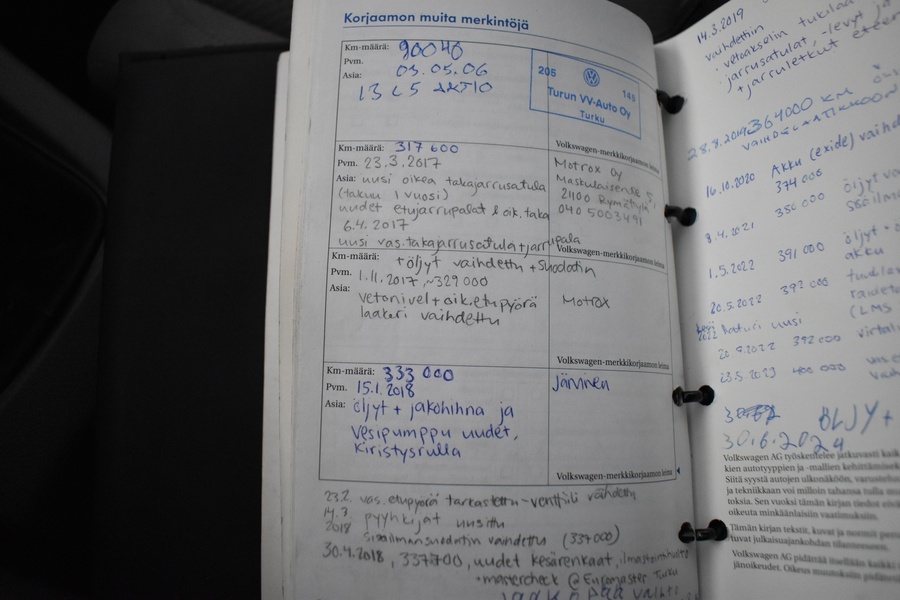 Korjaamon muita merkintöjä
Km-määrä: 90040
Pvm. 03.05.06
Asia: 13C5 AKTIO
205 145
Turun VV-Auto Oy
Turku
Volkswagen-merkkikorjaamon leima
Km-määrä: 317 600
Pvm. 23.3.2017
Asia: uusi oikea takajarrusatula
(takuu 1 vuosi)
uudet etujarrupalat & oik. taka
6.4.2017
uusi vas. takajarrusatula + jarrupala
Motrox Oy
Maskulaisentie 5,
21100
040 5003491
Volkswagen-merkkikorjaamon leima
Km-määrä: + öljyt vaihdettu + Suodatin
Pvm. 1.11.2017, ~329000
Asia: Vetonivel + oik. etupyörä
laakeri vaihdettu
Motrox
Volkswagen-merkkikorjaamon leima
Km-määrä: 333 000
Pvm. 15.1.2018
Asia: öljyt + jakohihna ja
vesipumppu uudet,
kiristysrulla
Järvinen
Volkswagen-merkkikorjaamon leima
23.2. vas. etupyörä tarkastettu - venttiili vaihdettu
14.3. pyyhkijät uusittu
2018 sisäilmansuodatin vaihdettu (337000)
30.4.2018, 337700, uudet kesärenkaat,
mastercheck @ Euromaster Turku
14.3.2019
vaihdettiin
jarrusatulat, -levyt ja
+ jarruletkut eteen
28.8.2019 364000 KM
16.10.2020 Akku (exide)
374 000
9.4.2021 380 000 öljyt
1.5.2022 391 000 öljyt +
akku
20.5.2022 392 000
(LMS
2022 uusi
392 000
23.5.2023 400 000
30.6.2024
Volkswagen AG työskentelee jatkuvasti
kien autotyyppien ja -mallien
Siitä syystä autojen ulkonäköön,
ja tekniikkaan voi milloin tahansa tulla
toksia. Sen vuoksi tämän kirjan tiedot eivät
oikeuta minkäänlaisiin vaatimuksiin.
Tämän kirjan tekstit, kuvat ja normit
tuvat julkaisuajankohdan tilanteeseen.
Volkswagen AG pidättää itsellään
jänoikeudet. Oikeus muutoksiin